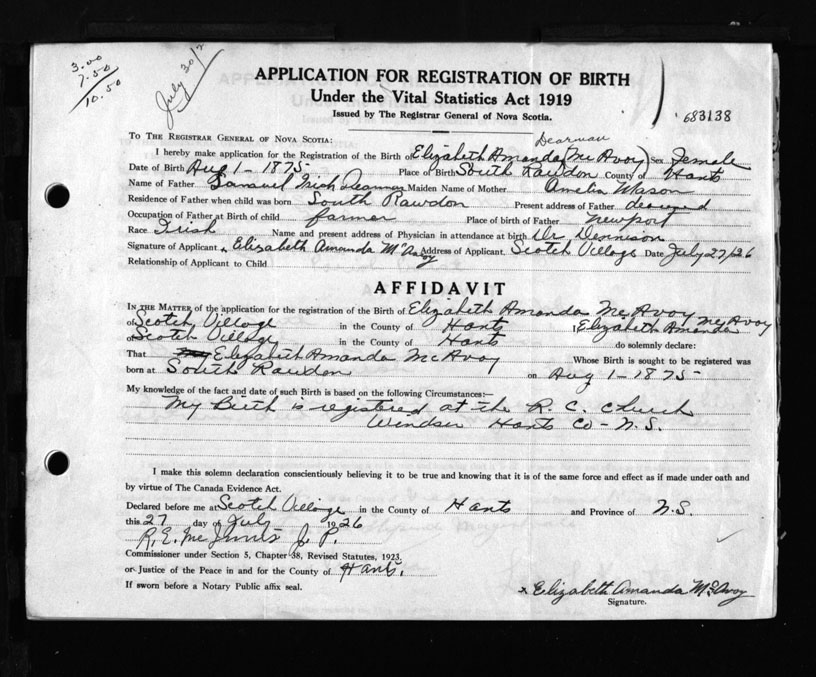 3.00
7.50
10.50
July 30/2
APPLICATION FOR REGISTRATION OF BIRTH
Under the Vital Statistics Act 1919
Issued by The Registrar General of Nova Scotia.
683138
TO THE REGISTRAR GENERAL OF NOVA SCOTIA:
Dearman
I hereby make application for the Registration of the Birth of Elizabeth Amanda (Mc Avoy) Sex Female
Date of Birth Aug 1 - 1875 Place of Birth South Rawdon County of Hants
Name of Father Samuel Dearman Maiden Name of Mother Amelia Mason
Residence of Father when child was born South Rawdon Present address of Father deceased
Occupation of Father at Birth of child farmer Place of birth of Father Newport
Race Irish Name and present address of Physician in attendance at birth Dr Dennison
Signature of Applicant x Elizabeth Amanda McAvoy Address of Applicant. Scotch Village Date July 27/26
Relationship of Applicant to Child
AFFIDAVIT
IN THE MATTER of the application for the registration of the Birth of Elizabeth Amanda McAvoy
of Scotch Village in the County of Hants I Elizabeth Amanda McAvoy
of Scotch Village in the County of Hants do solemnly declare:
That Elizabeth Amanda McAvoy Whose Birth is sought to be registered was
born at South Rawdon on Aug 1 - 1875
My knowledge of the fact and date of such Birth is based on the following Circumstances:—
My Birth is registered at the R. C. Church
Windsor Hants Co - N.S.
I make this solemn declaration conscientiously believing it to be true and knowing that it is of the same force and effect as if made under oath and
by virtue of The Canada Evidence Act.
Declared before me at Scotch Village in the County of Hants and Province of N.S.
this 27 day of July 1926
R. E. J. P.
Commissioner under Section 5, Chapter 38, Revised Statutes, 1923.
or Justice of the Peace in and for the County of Hants.
If sworn before a Notary Public affix seal.
x Elizabeth Amanda McAvoy
Signature.